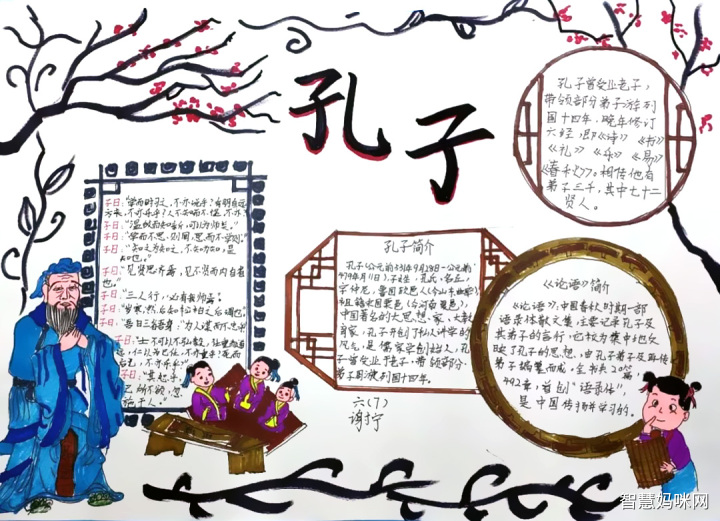 孔子
孔子曾问业老子，
带领部分弟子游列
国十四年，晚年修订
六经，即《诗》《书》
《礼》《乐》《易》
《春秋》。相传他有
弟子三千，其中七十二
贤人。
子曰："学而时习之，不亦说乎？有朋自远
方来，不亦乐乎？人不知而不愠，不亦
子曰："温故而知新，可以为师矣。"
子曰："学而不思则罔，思而不学则
子曰："知之为知之，不知为不知，是
知也。"
子曰："见贤思齐焉，见不贤而内自省
也。"
子曰："三人行，必有我师焉。
子曰："岁寒，然后知松柏之后凋也。"
子曰："士不可以不弘毅，任重而道
孔子简介
孔子（公元前551年9月28日—公元前
479年4月11日），子姓，孔氏，名丘，
字仲尼，鲁国陬邑（今山东曲阜）
祖籍宋国栗邑（今河南夏邑），
中国著名的大思想家、大教
育家。孔子开创了私人讲学的
风气，是儒家学创始人，孔子
曾受业于老子，带领部分
弟子周游列国十四年。
六(7)
《论语》简介
《论语》，中国春秋时期一部
语录体散文集，主要记录孔子及
其弟子的言行，它较为集中地反
映了孔子的思想。由孔子弟子及再传
弟子编纂而成。全书共20篇，
492章，首创"语录体"，
是中国传播学习的。
智慧妈咪网